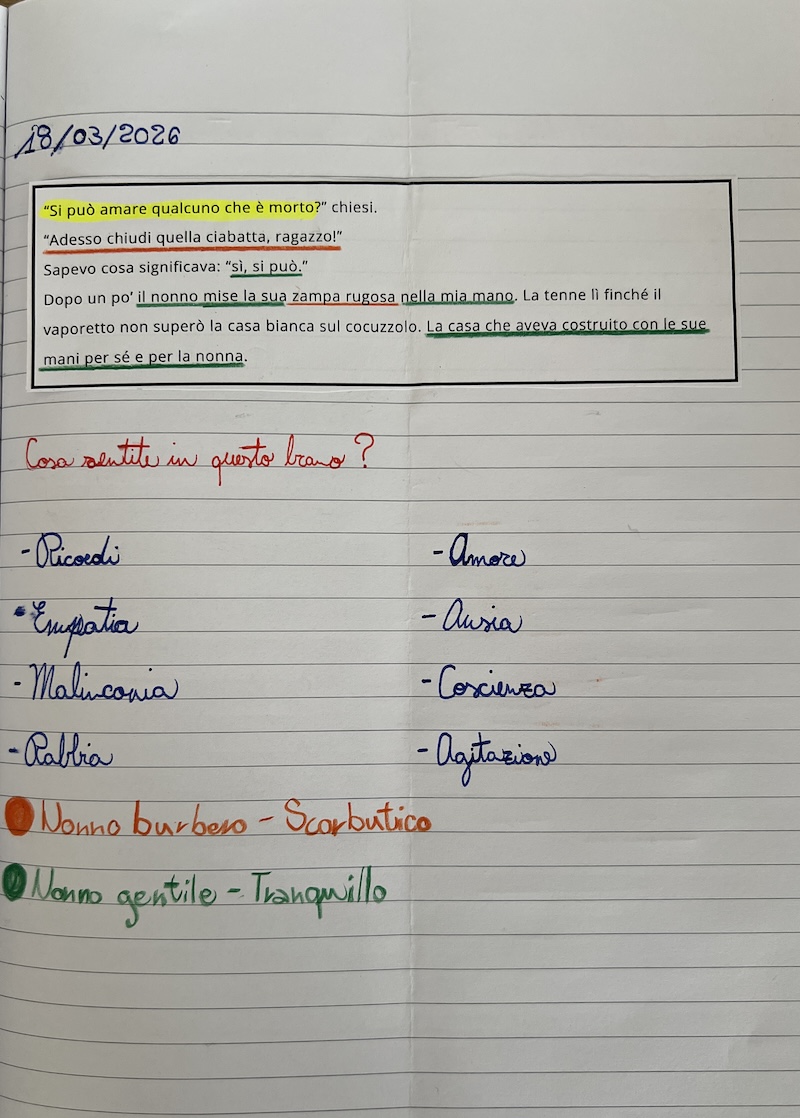 18/03/2026
“Si può amare qualcuno che è morto?” chiesi.
“Adesso chiudi quella ciabatta, ragazzo!”
Sapevo cosa significava: “sì, si può.”
Dopo un po’ il nonno mise la sua zampa rugosa nella mia mano. La tenne lì finché il
vaporetto non superò la casa bianca sul cocuzzolo. La casa che aveva costruito con le sue
mani per sé e per la nonna.
Cosa sentite in questo brano?
- Ricordi - Amore
- Empatia - Ansia
- Malinconia - Coscienza
- Rabbia - Agitazione
Nonno burbero - Scorbutico
Nonno gentile - Tranquillo